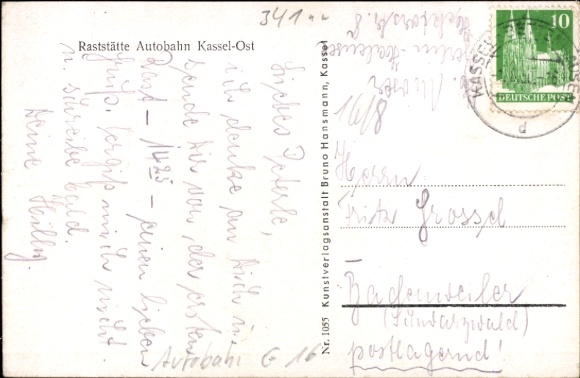 341
Raststätte Autobahn Kassel-Ost
Liebes Peterle,
ich denke an Dich u.
sende Dir von der ersten
Rast – 14 25 – einen lieben
Gruß. Vergiß mich nicht
u. schreibe bald.
Deine Helli
Autobahn G 16
Nr. 1055 Kunstverlagsanstalt Bruno Hansmann, Kassel
10
DEUTSCHE POST
KASSEL
d
16/8
Herrn
Fritz Grossel
Badenweiler
(Schwarzwald)
postlagernd!